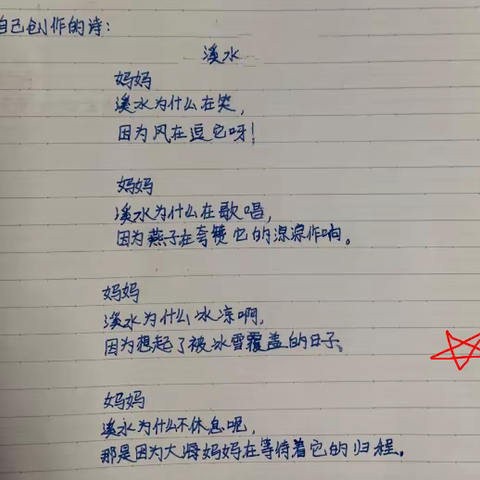 自己创作的诗:
溪水
妈妈
溪水为什么在笑,
因为风在逗它呀!
妈妈
溪水为什么在歌唱,
因为燕子在夸赞它的淙淙作响。
妈妈
溪水为什么冰凉啊,
因为想起了被冰雪覆盖的日子。
妈妈
溪水为什么不休息呢,
那是因为大海妈妈在等待着它的归程。